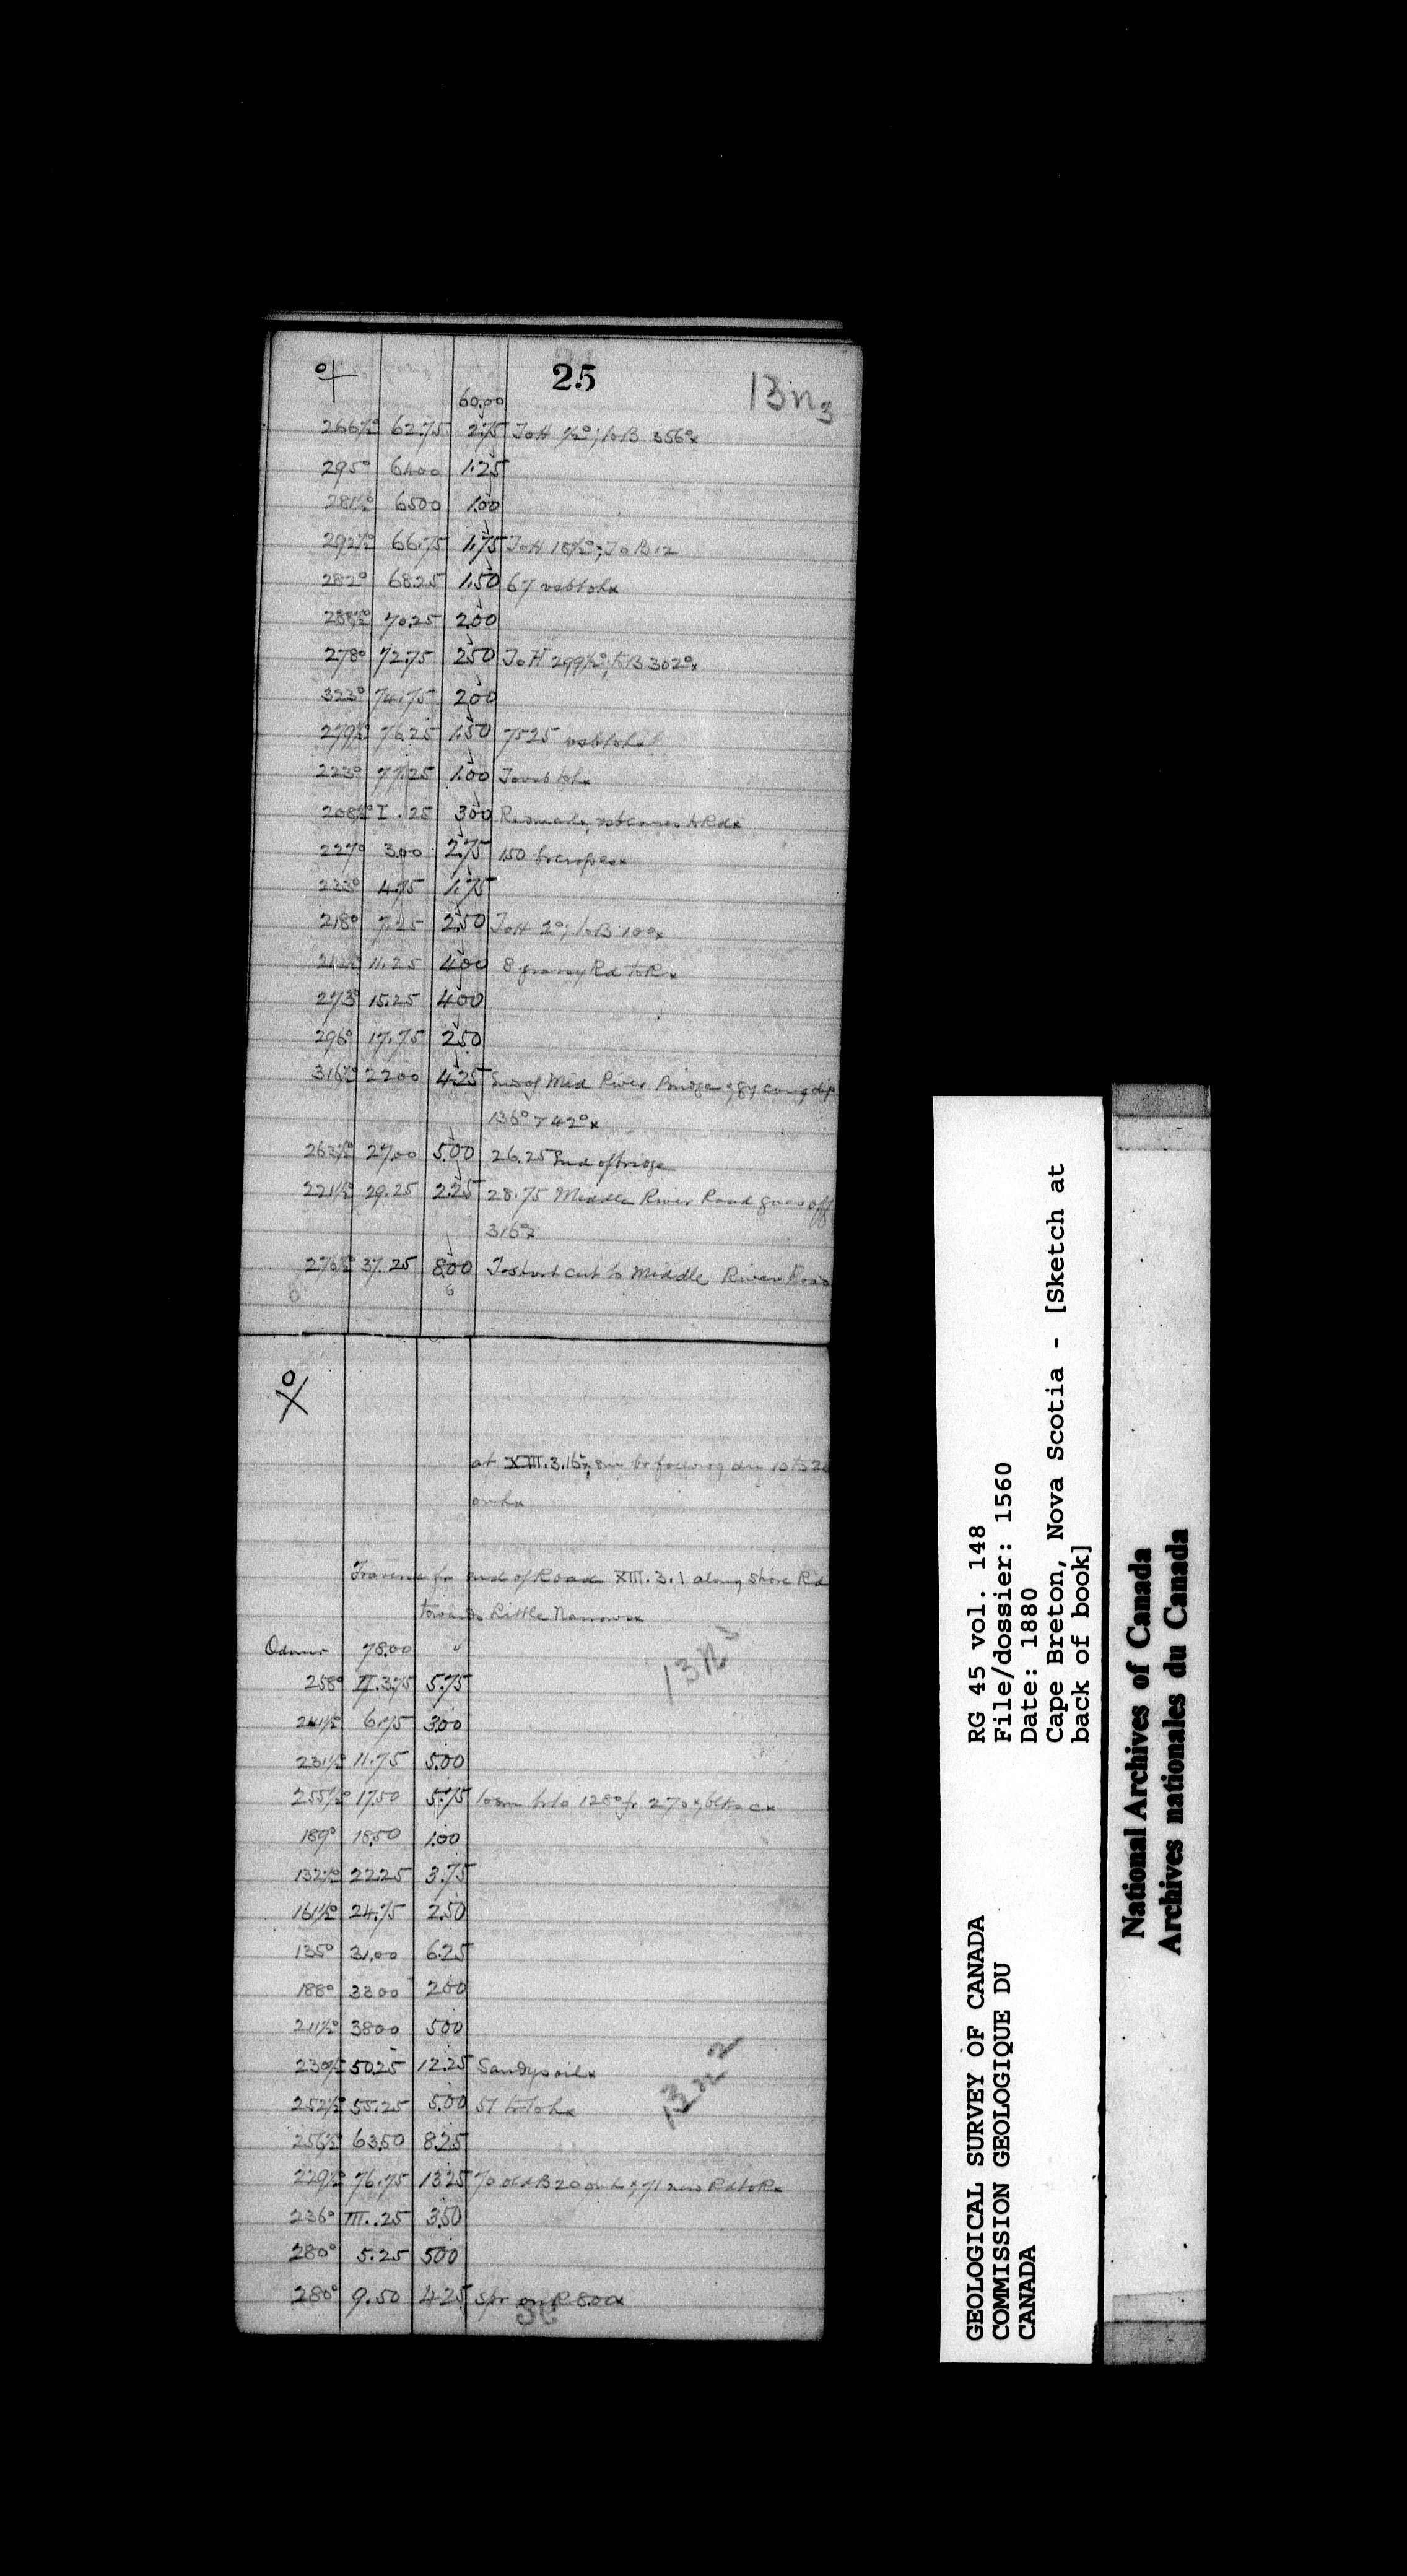 25
13n3
60.00
266½° 62.75 2.75 To H ½°; to B 356°x
295° 64.00 1.25
281½° 65.00 1.00
292½° 66.75 1.75 To H 18½°; To B 12
282° 68.25 1.50 67
288½° 70.25 2.00
278° 72.75 2.50 To H 299½°; to B 302°x
323° 74.75 2.00
279½° 76.25 1.50 75.25
223° 77.25 1.00
208½° I .25 3.00
227° 3.00 2.75 1.50
223° 4.75 1.75
218° 7.25 2.50 To H 2°; to B 10°x
212½° 11.25 4.00 8 grassy Rd to Rx
273° 15.25 4.00
296° 17.75 2.50
316½° 22.00 4.25 End of Mid River Bridge; gy cong dip
136° 7 42°x
263½° 27.00 5.00 26.25 End of bridge
221½° 29.25 2.25 28.75 Middle River Road goes off
316°x
276½° 37.25 8.00 To short cut to Middle River Road
6 6
at XIII.3.16
on Lx
Traverse fr end of Road XIII.3.1 along shore Rd
towards Little Narrowsx
Odomr 78.00
13n3
258° II.3.75 5.75
241½° 6.75 3.00
231½° 11.75 5.00
255½° 17.50 5.75
189° 18.50 1.00
132½° 22.25 3.75
161½° 24.75 2.50
135° 31.00 6.25
188° 33.00 2.00
211½° 38.00 5.00
230½° 50.25 12.25 Sandy soilx
13n2
252½° 55.25 5.00 51
256½° 63.50 8.25
229½° 76.75 13.25 To old B 20 on Lx; 71 new Rd to Rx
236° III..25 3.50
280° 5.25 5.00
280° 9.50 4.25 Spr on R 8.00x
GEOLOGICAL SURVEY OF CANADA
COMMISSION GEOLOGIQUE DU
CANADA
RG 45 vol. 148
File/dossier: 1560
Date: 1880
Cape Breton, Nova Scotia - [Sketch at
back of book]
National Archives of Canada
Archives nationales du Canada